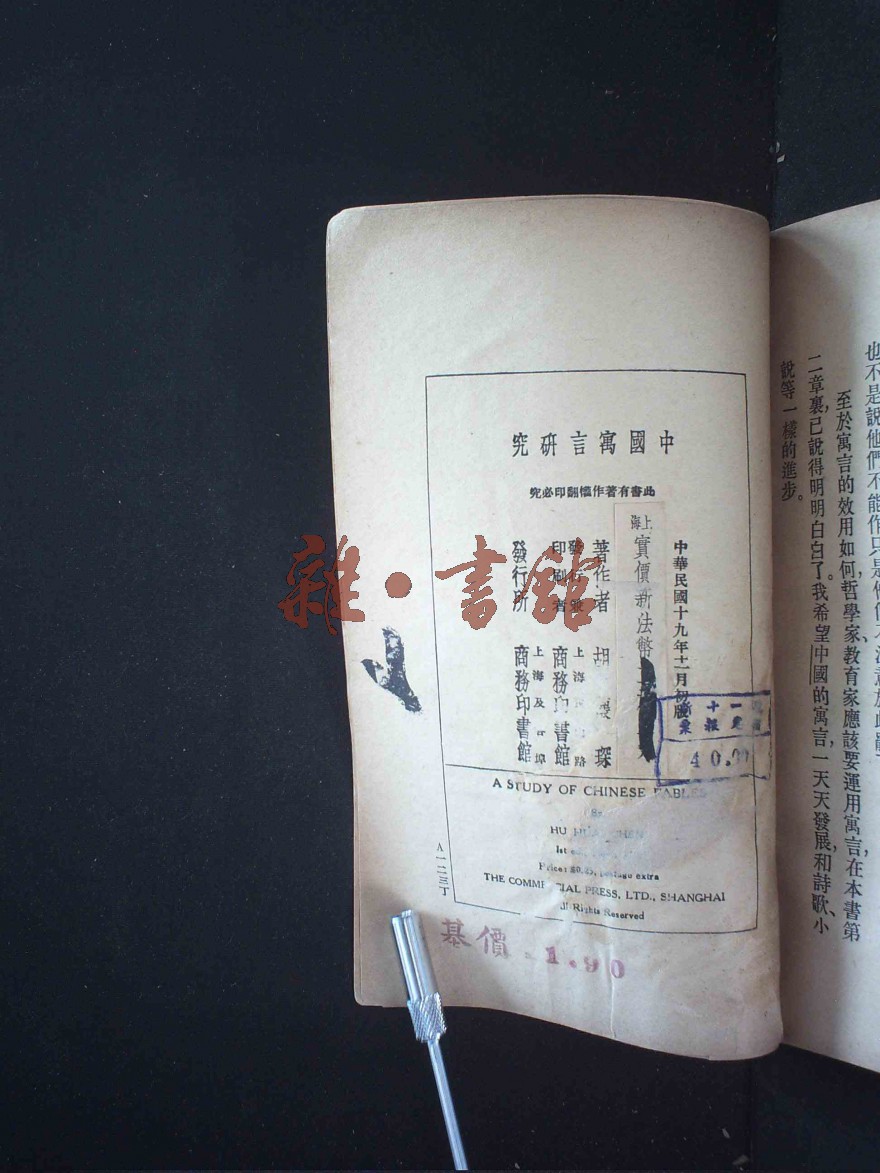 也不是說他們不能作只是他們不注意於此罷了
至於寓言的效用如何,哲學家、教育家應該要運用寓言,在本書第
二章裏已說得明明白白了。我希望中國的寓言,一天天發展,和詩歌、小
說等一樣的進步。
中國寓言研究
此書有著作權翻印必究
中華民國十九年十一月初版
上海實價新法幣
著作者 胡 琛
發行兼印刷者 上海 路 商務印書館
發行所 上海及 埠 商務印書館
40.00
A STUDY OF CHINESE FABLES
By
HU HUAI CHEN
1st
Price: postage extra
THE COMMERCIAL PRESS, LTD., SHANGHAI
All Rights Reserved
A一二三丁
基價 1.90
雜·書館